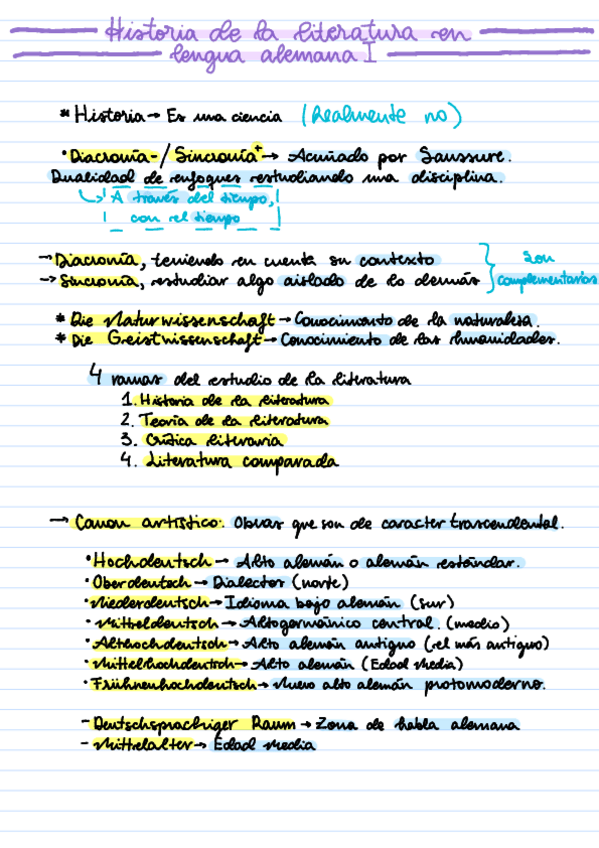 Historia de la literatura en
lengua alemana I
* Historia → Es una ciencia (Realmente no)
• Diacronía - / Sincronía + → Acuñado por Saussure.
Dualidad de enfoques estudiando una disciplina.
↳ A través del tiempo,
con el tiempo
→ Diacronía, teniendo en cuenta su contexto
→ Sincronía, estudiar algo aislado de lo demás
son
complementarios
* Die Naturwissenschaft → Conocimiento de la naturaleza.
* Die Geistwissenschaft → Conocimiento de las humanidades.
4 ramas del estudio de la literatura
1. Historia de la literatura
2. Teoría de la literatura
3. Crítica literaria
4. Literatura comparada
→ Canon artístico: Obras que son de caracter trascendental.
• Hochdeutsch → Alto alemán o alemán estándar.
• Oberdeutsch → Dialectos (norte)
• Niederdeutsch → Idioma bajo alemán (sur)
• Mitteldeutsch → Altogermánico central. (medio)
• Althochdeutsch → Alto alemán antiguo (el más antiguo)
• Mittelhochdeutsch → Alto alemán (Edad Media)
• Frühneuhochdeutsch → Nuevo alto alemán protomoderno.
- Deutschsprachiger Raum → Zona de habla alemana
- Mittelalter → Edad Media